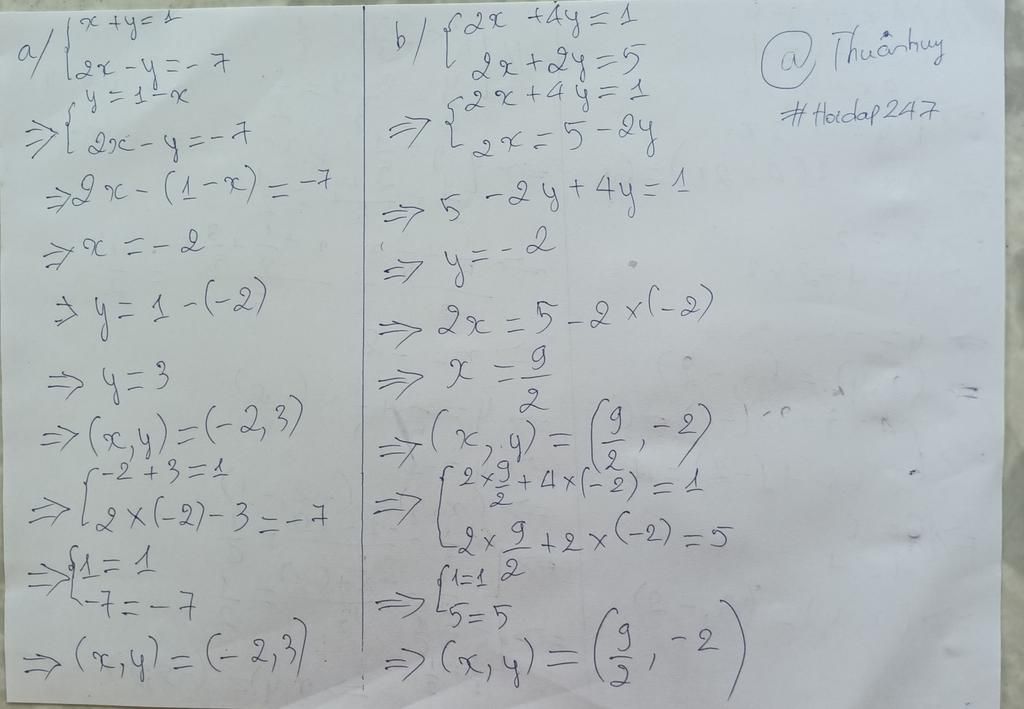 a/ { x + y = 1
2x - y = - 7
=> { y = 1 - x
2x - y = - 7
=> 2x - (1 - x) = -7
=> x = - 2
=> y = 1 - (-2)
=> y = 3
=> (x, y) = (-2, 3)
=> { -2 + 3 = 1
2 × (-2) - 3 = -7
=> { 1 = 1
-7 = -7
=> (x, y) = (-2, 3)
b/ { 2x + 4y = 1
2x + 2y = 5
=> { 2x + 4y = 1
2x = 5 - 2y
=> 5 - 2y + 4y = 1
=> y = - 2
=> 2x = 5 - 2 × (-2)
=> x = 9/2
=> (x, y) = (9/2, -2)
=> { 2 × 9/2 + 4 × (-2) = 1
2 × 9/2 + 2 × (-2) = 5
=> { 1 = 1
5 = 5
=> (x, y) = (9/2, -2)
@ Thuânhuy
#Hoidap247